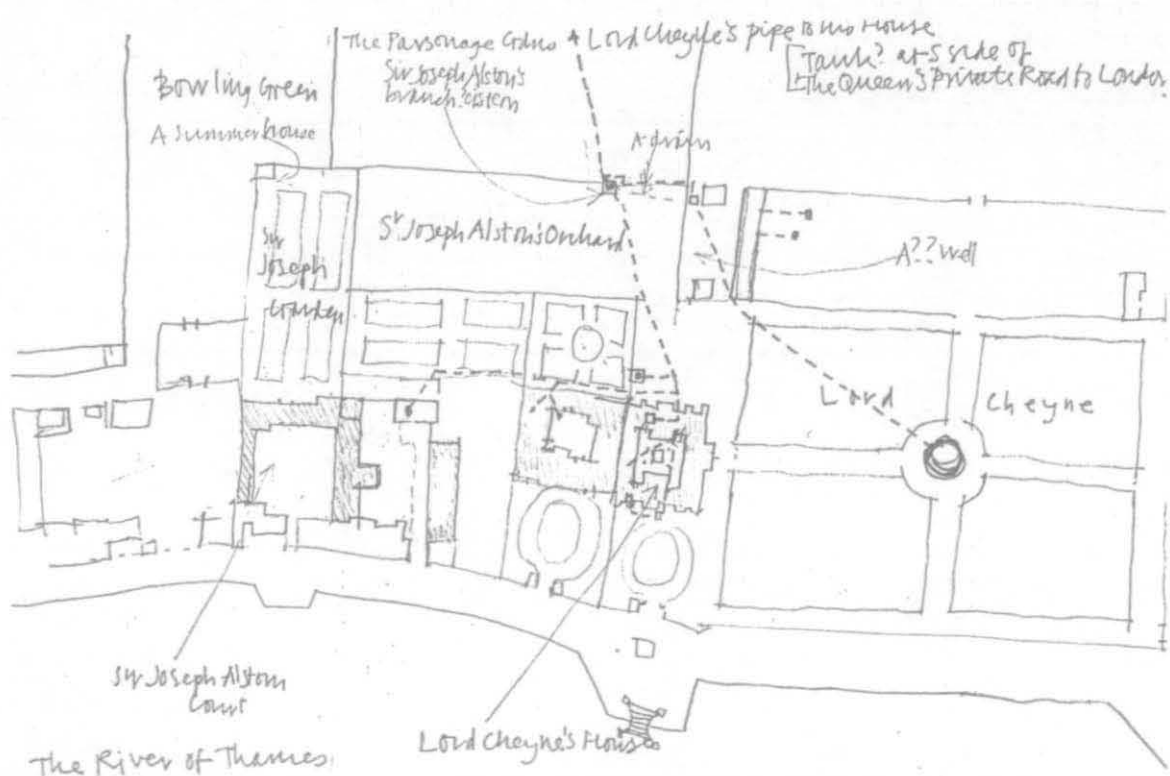 The Parsonage Gdns & Lord Cheyne's pipe to his House
[Tank? at S side of
The Queen's Private Road to London.
Sir Joseph Alston's
branch? cistern
Bowling Green
A Summerhouse
A drain
Sr Joseph Alston's Orchard
A?? Well
Sir
Joseph
Garden
Lord Cheyne
Sir Joseph Alston
Court
Lord Cheyne's House
The River of Thames